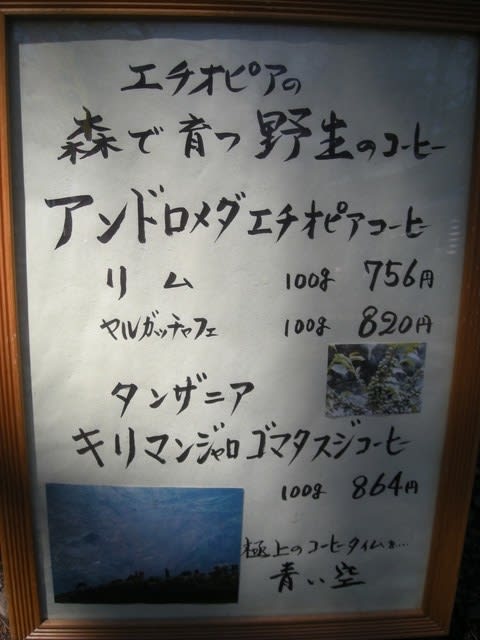 エチオピアの
森で育つ野生のコーヒー
アンドロメダエチオピアコーヒー
リム 100g 756円
ヤルガッチャフェ 100g 820円
タンザニア
キリマンジャロゴマタスジコーヒー
100g 864円
極上のコーヒータイムを…
青い空